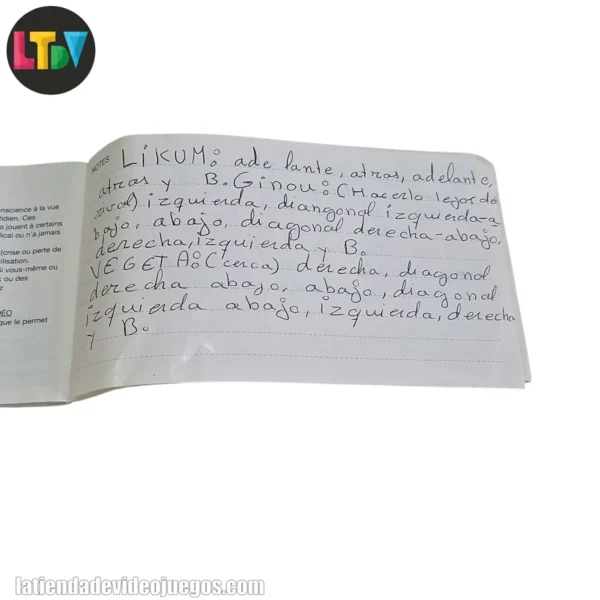 LTDV
NOTES
LiKUM: ade lante, atras, adelante,
atras y B. Ginou: (Hacerlo lejos de
rival) izquierda, diangonal izquierda-a
bajo, abajo, diagonal derecha-abajo,
derecha, izquierda y B.
VEGETA: (cerca) derecha, diagonal
derecha abajo, abajo, diagonal
izquierda abajo, izquierda, derecha
y B.
nscience à la vue
tidien. Ces
s jouent à certains
lical ou n'a jamais
(crise ou perte de
ilisation.
Si vous-même ou
s ou des
z
DÉO
que le permet
latiendadevideojuegos.com